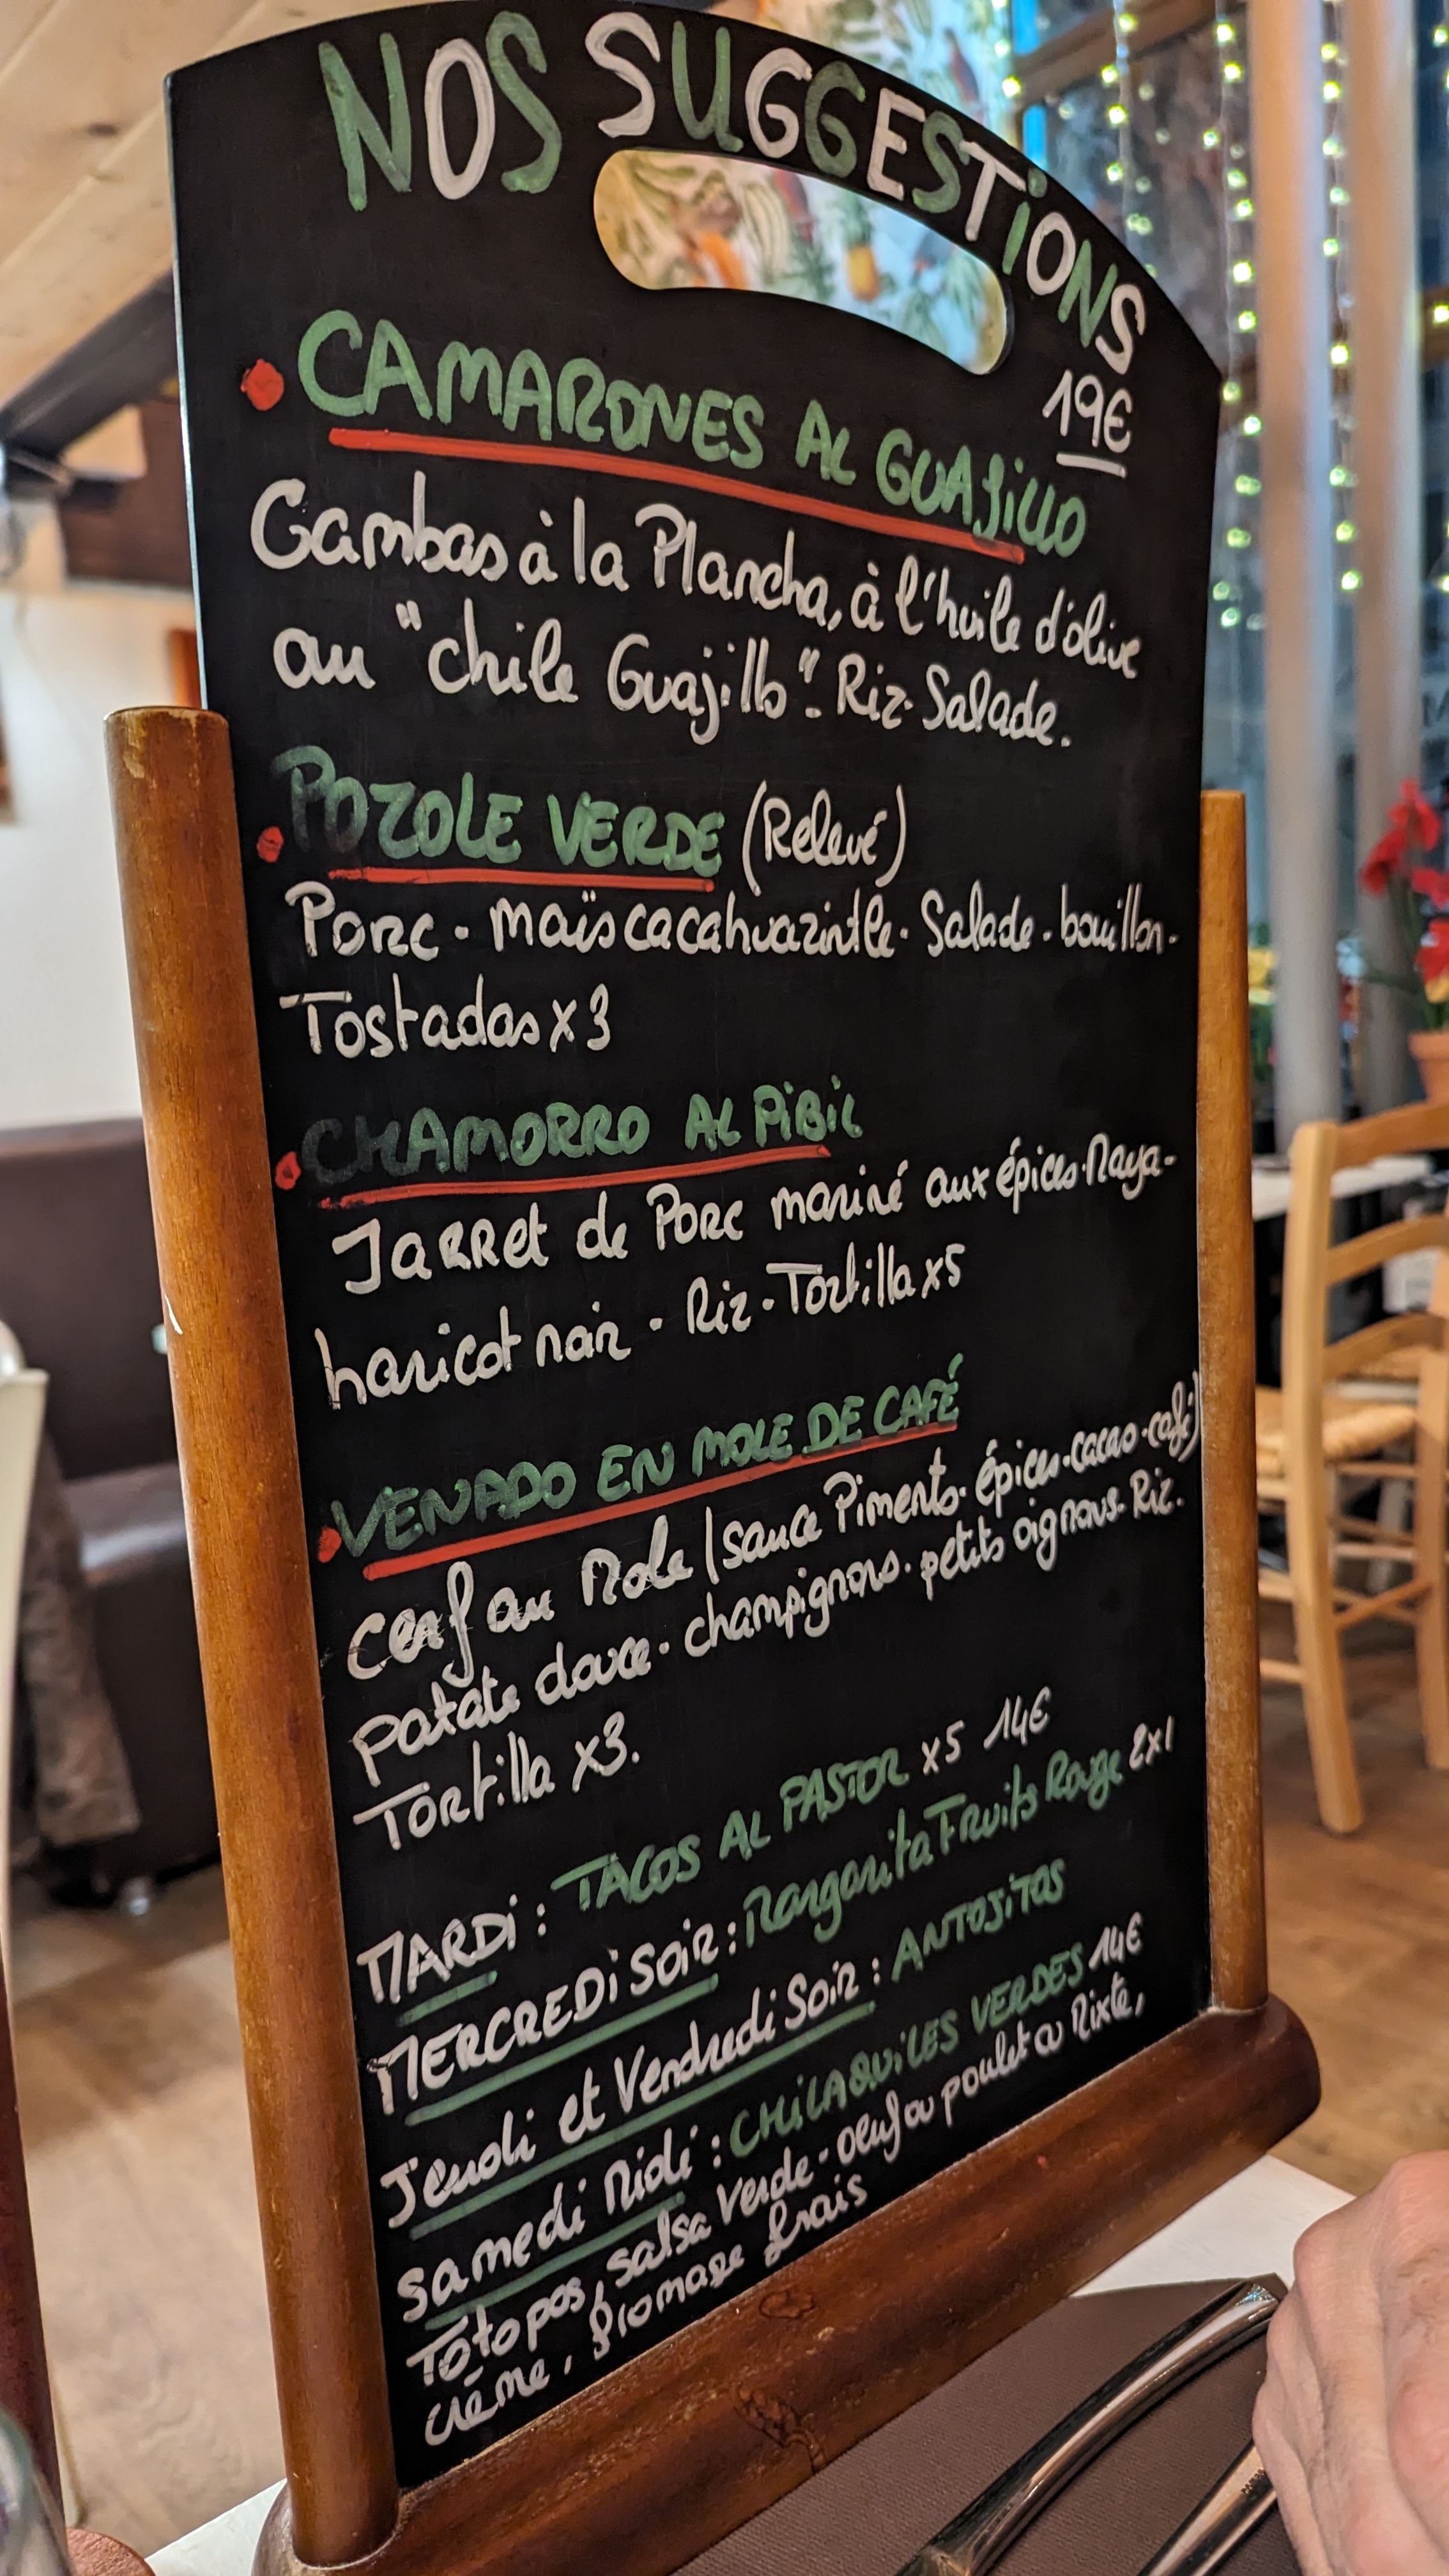 NOS SUGGESTiONS
19€
• CAMARONES AL GUAJiLLO
Gambas à la Plancha, à l'huile d'olive
au "chile Guajillo". Riz. Salade.
• POZOLE VERDE (Relevé)
Porc. maïs cacahuazintle. Salade. bouillon.
Tostadas x 3
• CHAMORRO AL PiBiL
Jarret de Porc mariné aux épices Maya-
haricot noir - Riz. Tortilla x5
• VENADO EN MOLE DE CAFÉ
cerf au Mole (sauce Piments. épices.cacao.café)
patate douce. champignons. petits oignons. Riz.
Tortilla x3.
MARDi : TACOS AL PASTOR x5 14€
MERCREDi SOiR : Margarita Fruits Rouge 2x1
Jeudi et Vendredi Soir : ANTOJiTOS
samedi Midi : CHiLAQUiLES VERDES 14€
Totopos, salsa Verde - oeuf ou poulet ou Mixte,
crème, fromage frais